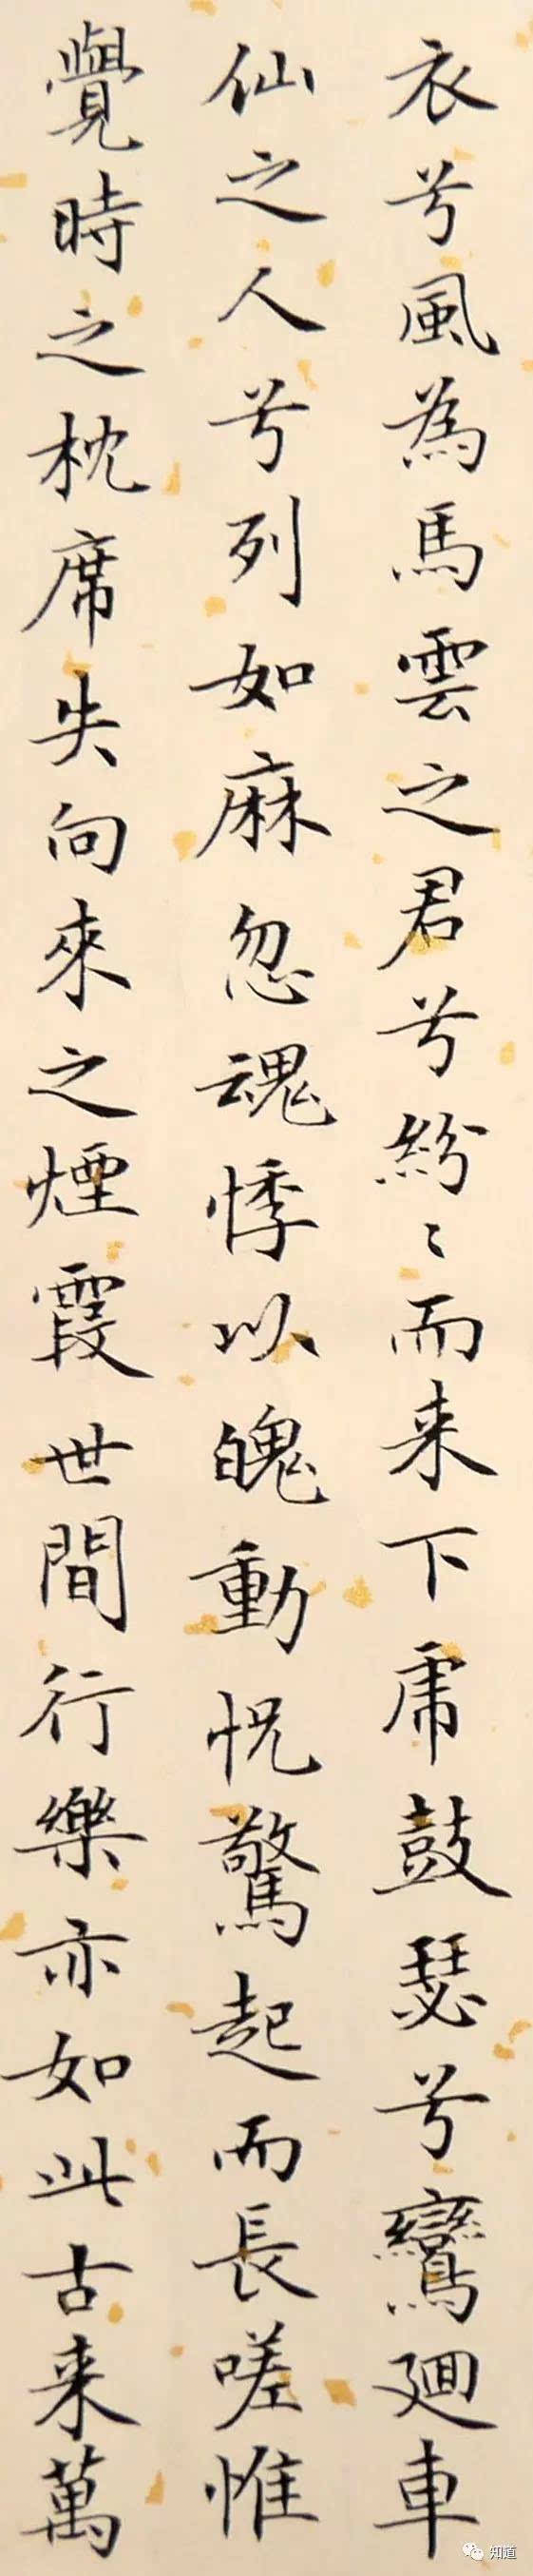 衣兮風為馬雲之君兮紛〻而来下虎鼓瑟兮鸞廻車
仙之人兮列如麻忽魂悸以魄動怳驚起而長嗟惟
覺時之枕席失向來之煙霞世間行樂亦如此古来萬
知道